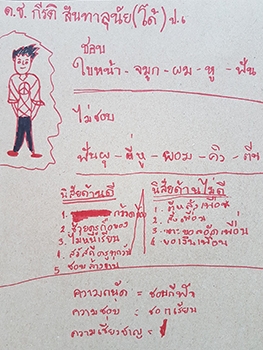 ด.ช. กีรติ สินทาลุนัย (โด้) ป.๖
ชอบ
ใบหน้า - จมูก - ผม - หู - ฟัน
ไม่ชอบ
ฟันผุ - ขี้หู - ผอม - คิ้ว - ตีน
นิสัยด้านดี
1.
2. ช่วยครูถือของ
3. ไม่หนีเรียน
4. สวัสดีครูทุกวัน
5. ชอบล้างจาน
นิสัยด้านไม่ดี
1. ตีหลังเพื่อน
2. สั่งเพื่อน
3. เพื่อน
4. ขอเงินเพื่อน
ความถนัด = ชอบกีฬา
ความชอบ = ชอบเรียน
ความเชี่ยวชาญ =